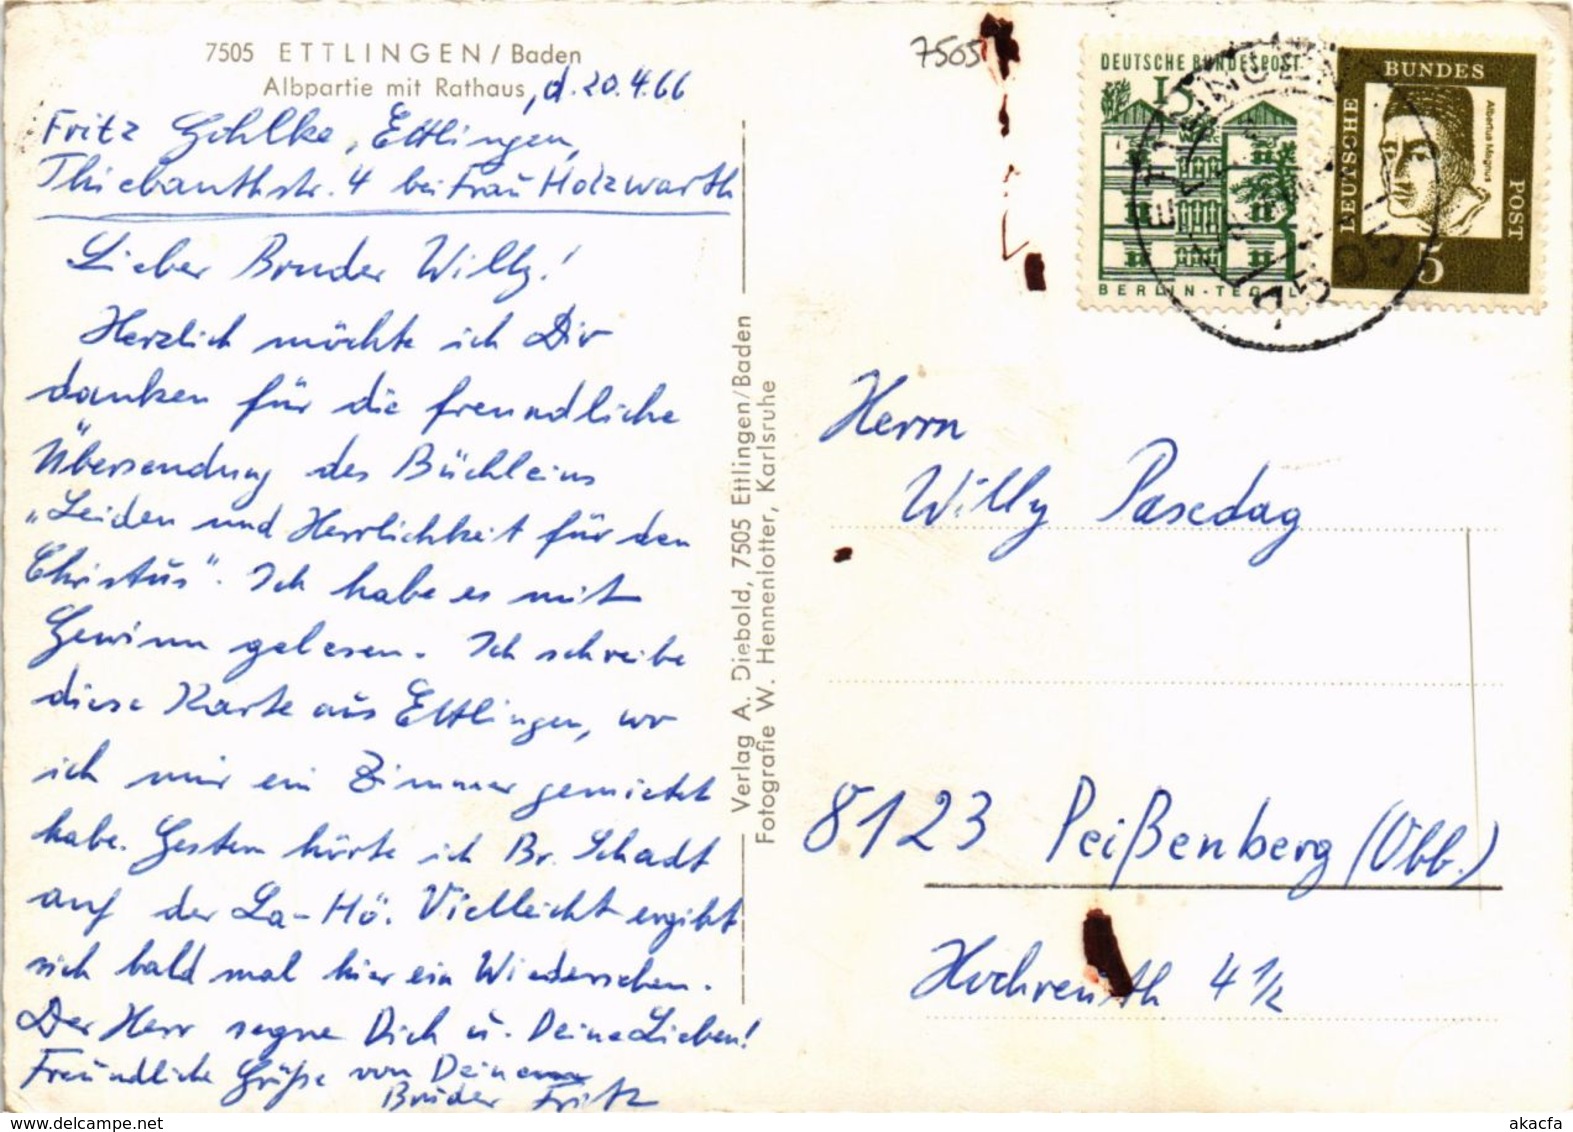 7505 ETTLINGEN / Baden
Albpartie mit Rathaus, d. 20.4.66
Fritz Gohlke, Ettlingen,
Thiebauthstr. 4 bei Frau Holzwarth
Lieber Bruder Willy!
Herzlich möchte ich Dir
danken für die freundliche
Übersendung des Büchleins
„Leiden und Herrlichkeit für den
Christus". Ich habe es mit
Gewinn gelesen. Ich schreibe
diese Karte aus Ettlingen, wo
ich mir ein Zimmer gemietet
habe. Gestern hörte ich Br. Schadt
auf der La-Hö. Vielleicht ergibt
sich bald mal hier ein Wiedersehen.
Der Herr segne Dich u. Deine Lieben!
Freundliche Grüße von Deinem
Bruder Fritz
Verlag A. Diebold, 7505 Ettlingen/Baden
Fotografie W. Hennenlotter, Karlsruhe
7505
DEUTSCHE BUNDESPOST
15
BERLIN-TEGEL
BUNDES
DEUTSCHE
POST
Albertus Magnus
5
ETTLINGEN
7505
Herrn
Willy Pasedag
8123 Peißenberg (Obb.)
Hochreuth 4 1/2
akacfa
delcampe.net